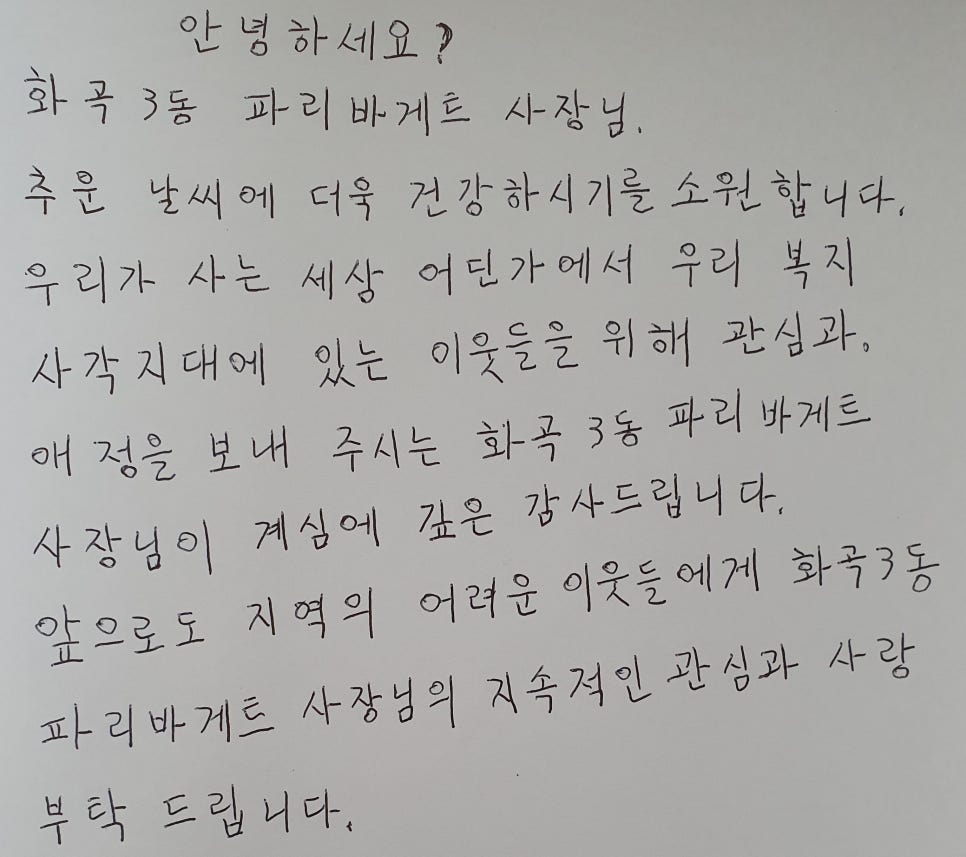 안녕하세요?
화곡3동 파리바게트 사장님.
추운 날씨에 더욱 건강하시기를 소원합니다.
우리가 사는 세상 어딘가에서 우리 복지
사각지대에 있는 이웃들을 위해 관심과.
애정을 보내 주시는 화곡3동 파리바게트
사장님이 계심에 깊은 감사드립니다.
앞으로도 지역의 어려운 이웃들에게 화곡3동
파리바게트 사장님의 지속적인 관심과 사랑
부탁 드립니다.